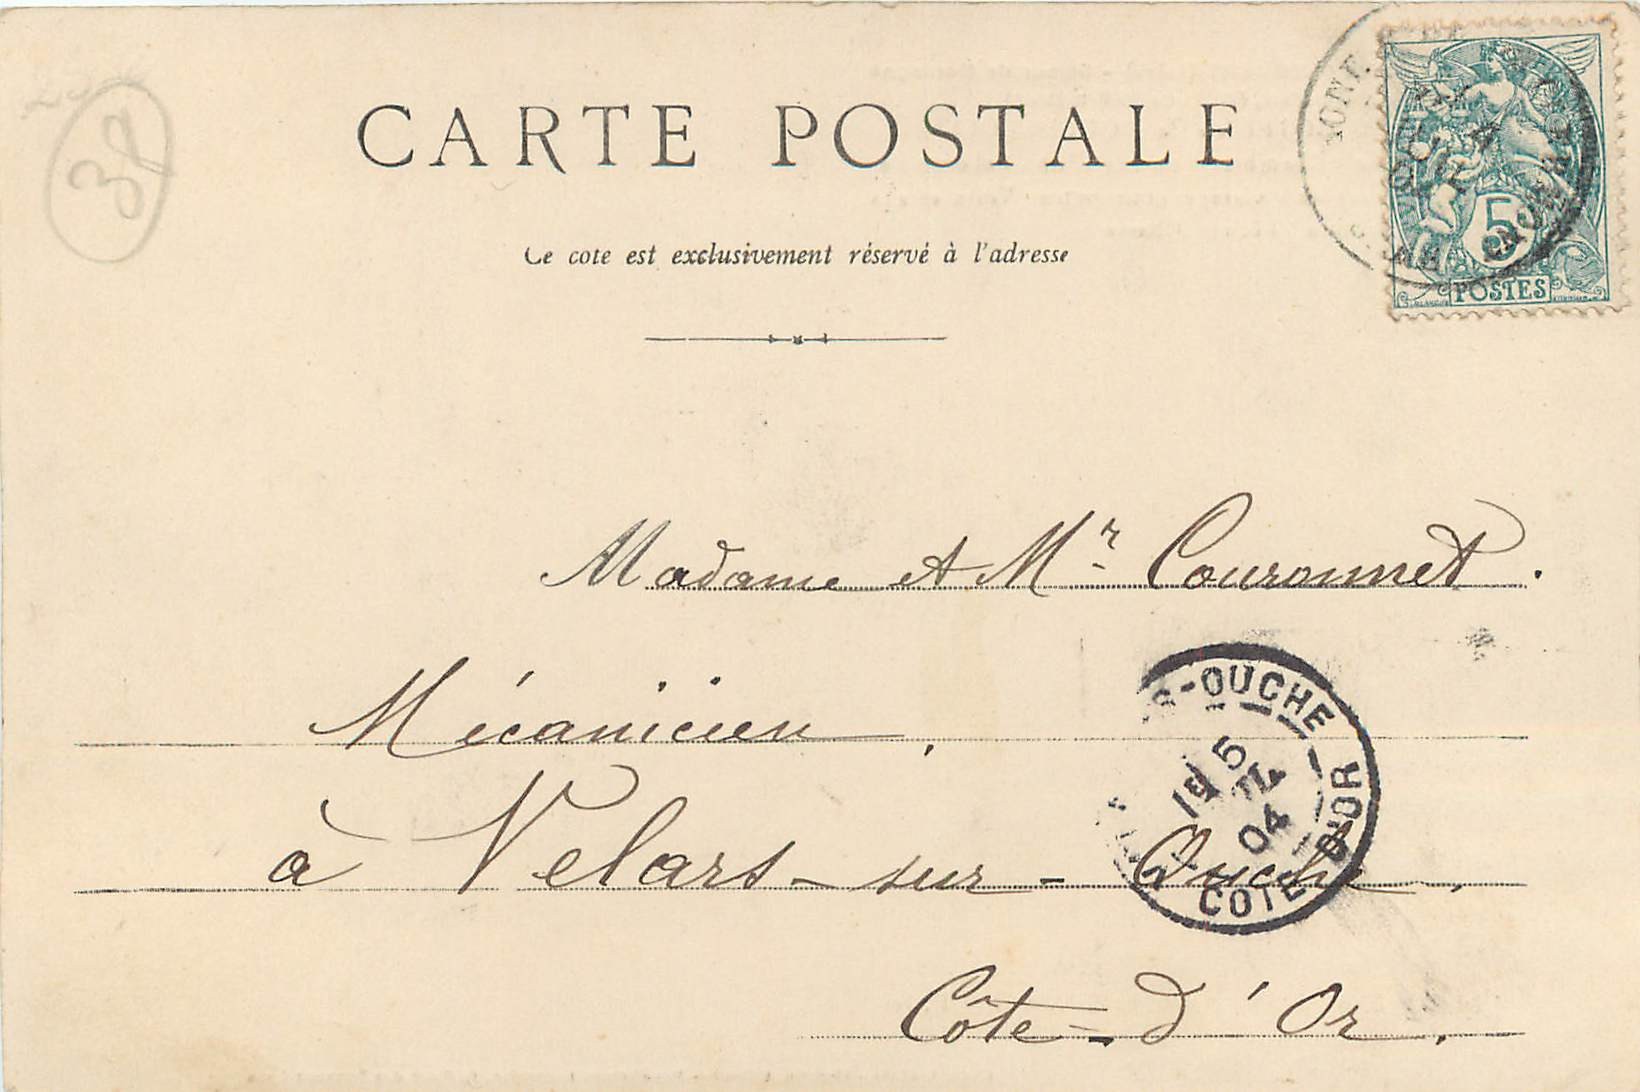 38
CARTE POSTALE
Ce cote est exclusivement réservé à l'adresse
5
POSTES
Madame et Mr Couronnet.
Mécanicien,
à Velars-sur-Ouche,
Côte-d'Or.
S-OUCHE
5
04
COTE D'OR